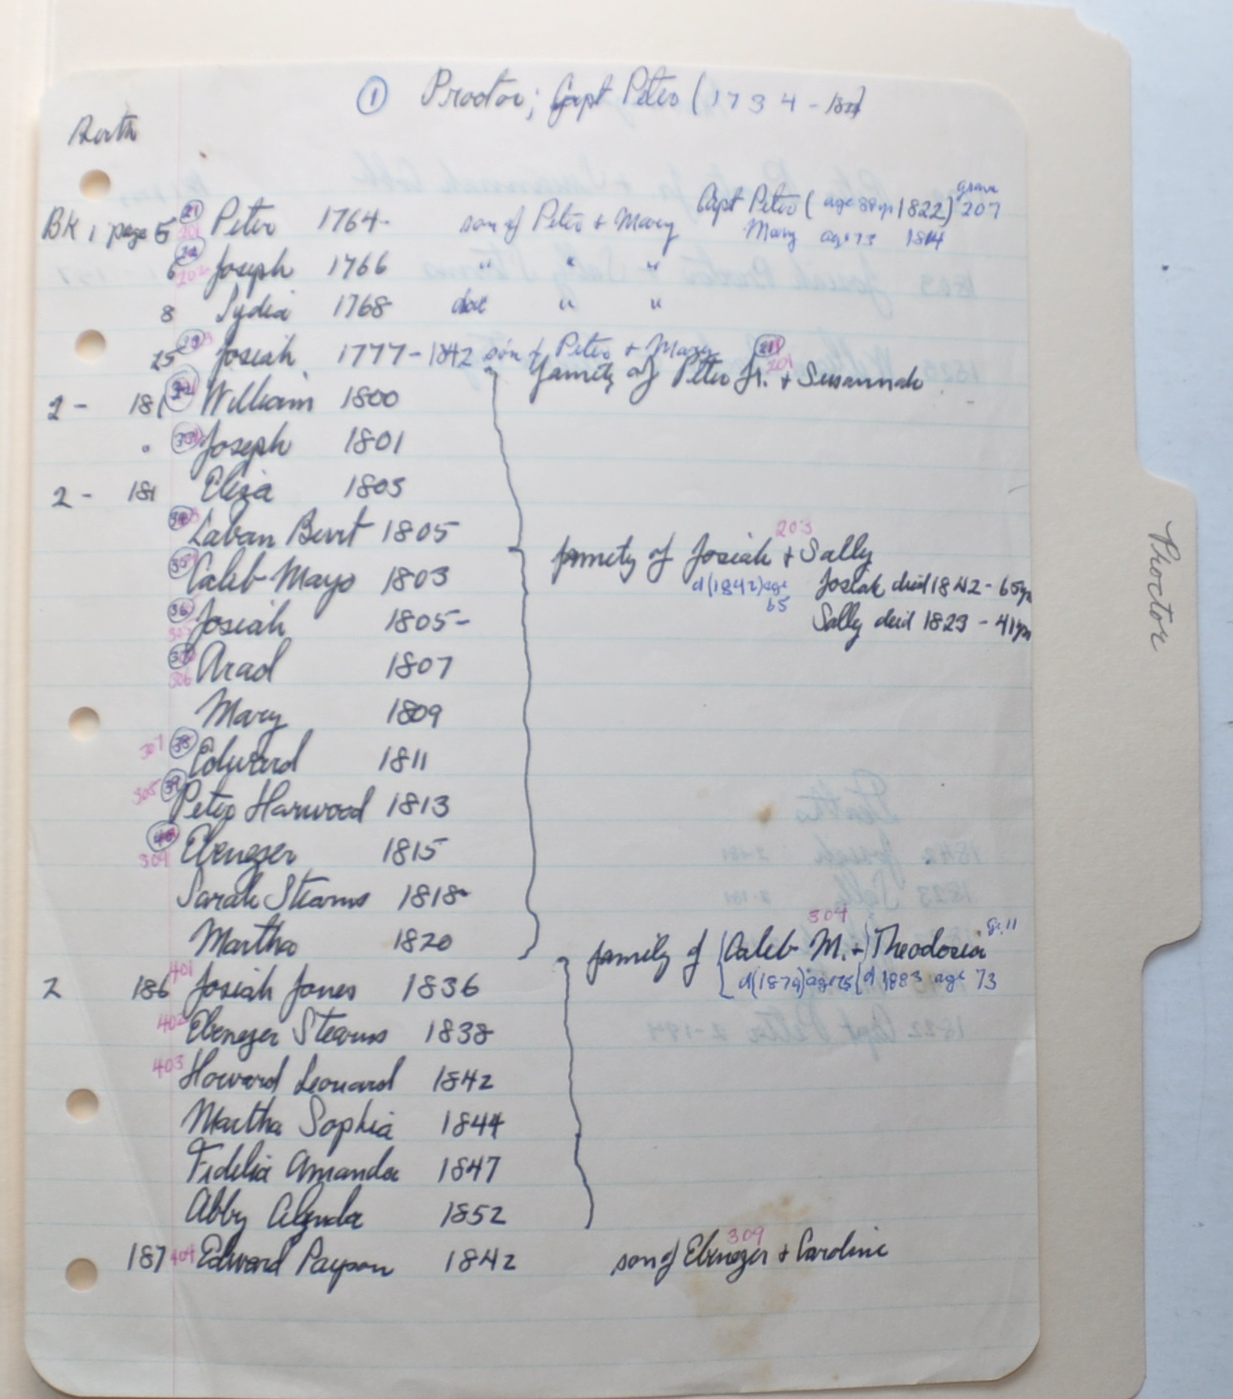 ① Proctor; Capt Peter (1734-1822)
Birth
grave
BK 1 page 5 21 201 Peter 1764- son of Peter + Mary Capt Peter (age 88 yr 1822) 207
Mary age 73 1814
6 22 202 Joseph 1766 " " "
8 Lydia 1768 dat " "
25 23 203 Josiah 1777-1842 son of Peter + Mary 21 201
family of Peter Jr. + Susannah
2 - 181 William 1800
" Joseph 1801
2 - 181 Eliza 1803
Laban Burt 1805
203
Caleb Mayo 1803 family of Josiah + Sally
d(1842) age 65 Josiah died 1842 - 65 yr
36 Josiah 1805- Sally died 1823 - 41 yr
37 306 Arad 1807
Mary 1809
307 38 Edward 1811
39 Peter Harwood 1813
40 309 Ebenezer 1815
Sarah Stearns 1818
304
Martha 1820 family of Caleb M. + Theodosia
d(1879) age 75 d 1883 age 73
2 186 401 Josiah Jones 1836
402 Ebenezer Stearns 1838
403 Howard Leonard 1842
Martha Sophia 1844
Fidelia Amanda 1847
Abby 1852
309
187 404 Edward Payson 1842 son of Ebenezer + Caroline
Proctor